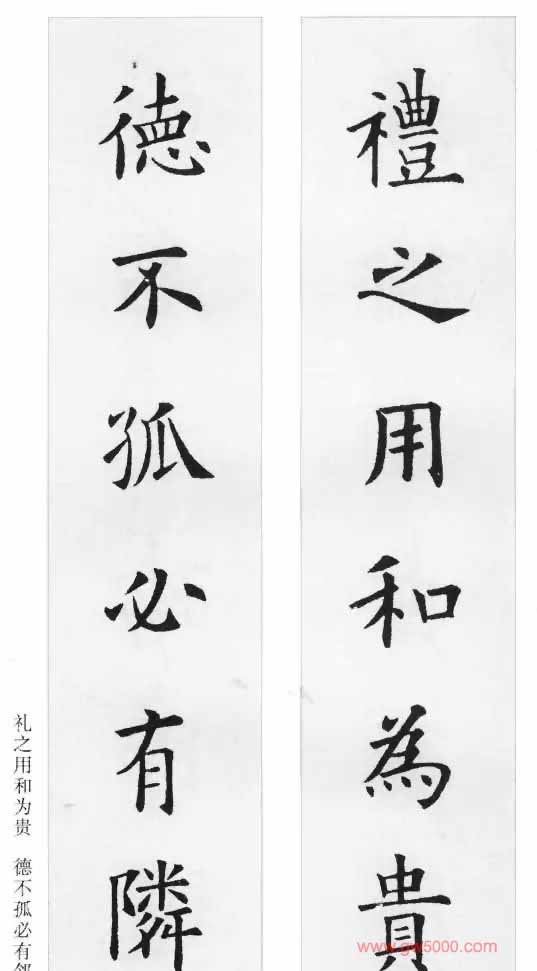 禮之用和為貴
德不孤必有隣
礼之用和为贵 德不孤必有邻
www.gw5000.com